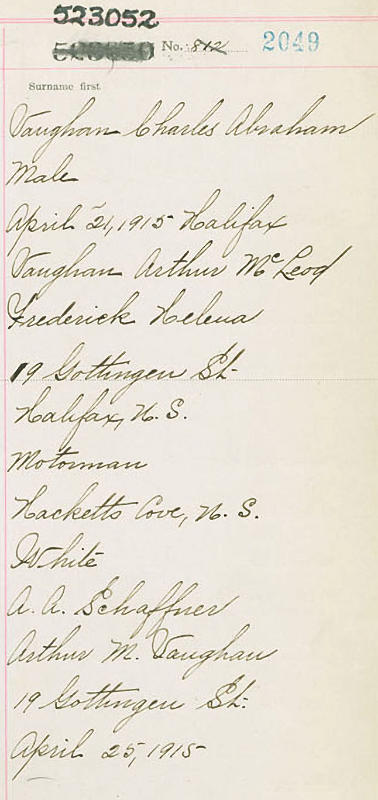 523052
No. 812 2049
Surname first
Vaughan Charles Abraham
Male
April 21, 1915 Halifax
Vaughan Arthur McLeod
Frederick Helena
19 Gottingen St.
Halifax, N. S.
Motorman
Hacketts Cove, N. S.
White
A. A. Schaffner
Arthur M. Vaughan
19 Gottingen St.
April 25, 1915